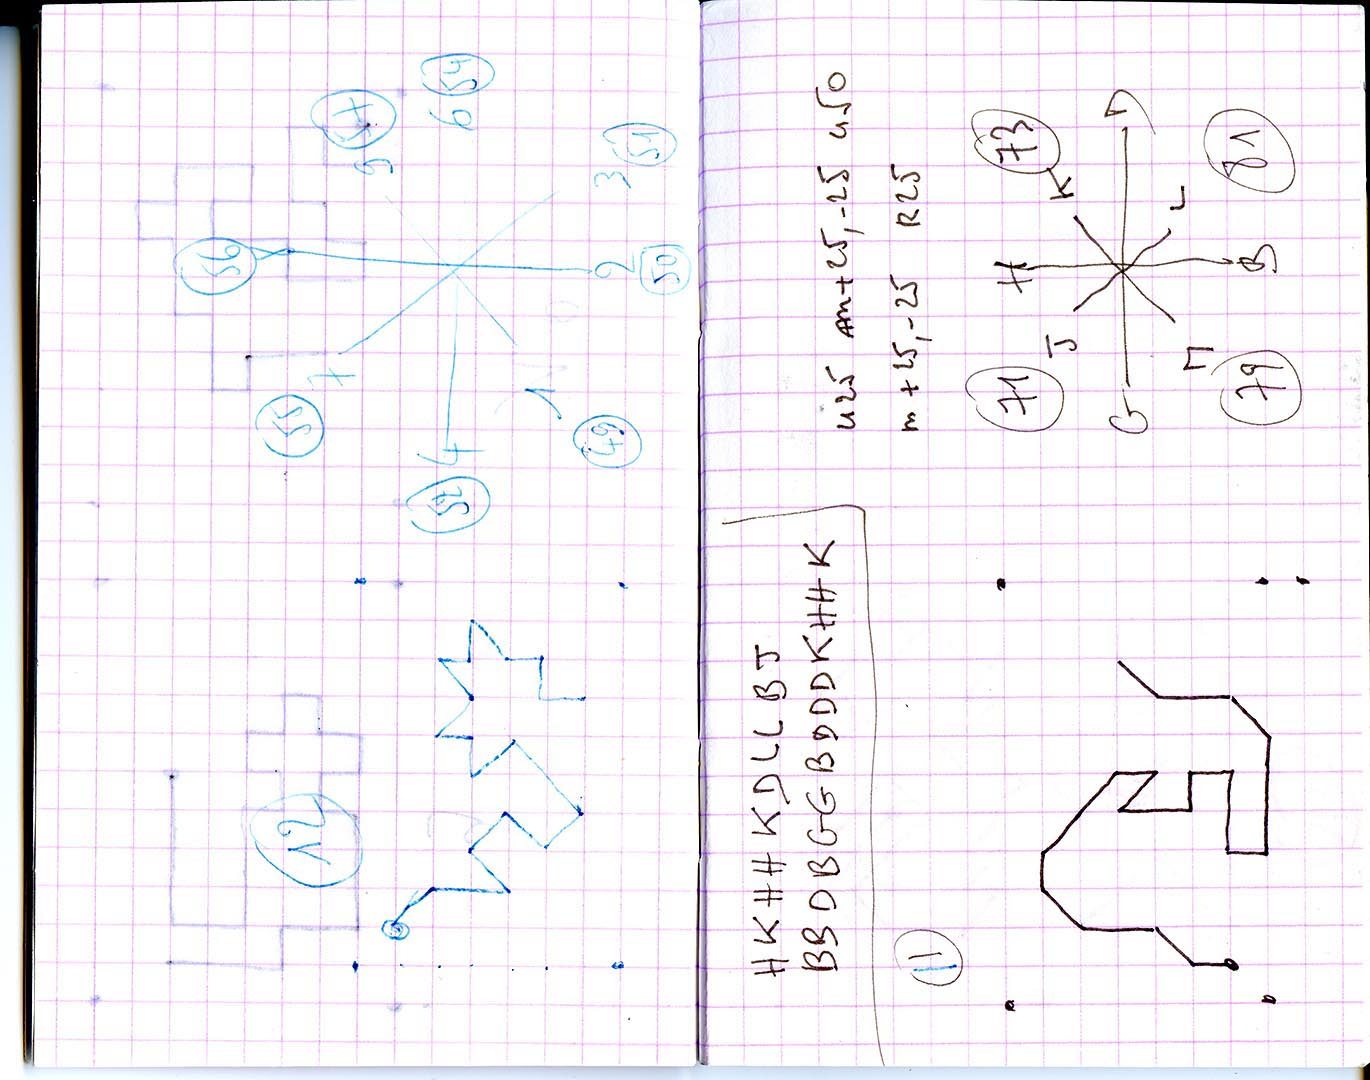 56
55 57
12 7 9
52 4 6 54
1 2 3
49 50 51
HKHHKDLLBJ
BBDBGGBDDDKHHK
u25 am+25,-25 u50
m+25,-25 R25
11
71 H 73
J K
G D
M L
79 B 81